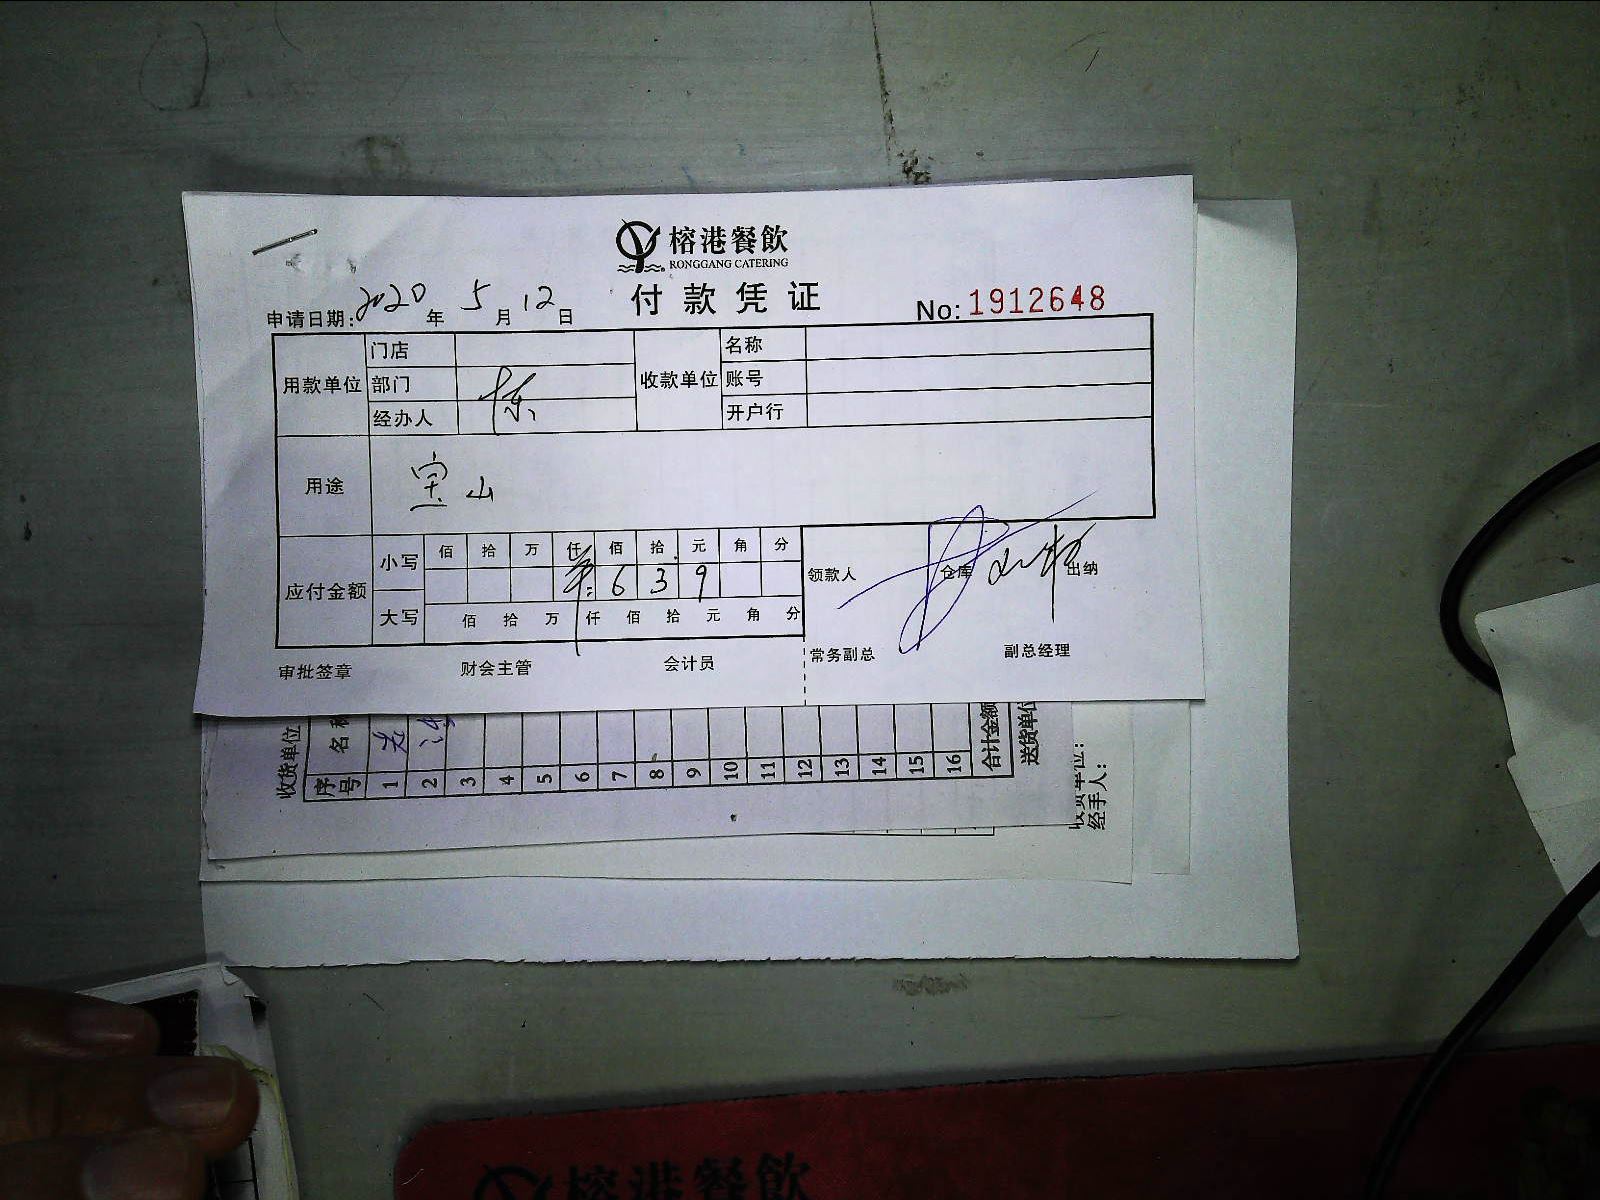 榕港餐飲
RONGGANG CATERING
付款凭证
申请日期: 2020 年 5 月 12 日
No: 1912648
用款单位 门店 收款单位 名称
部门 账号
经办人 开户行
用途 宝山
应付金额 小写 佰 拾 万 仟 佰 拾 元 角 分
6 3 9
大写 佰 拾 万 仟 佰 拾 元 角 分
领款人 仓库 出纳
审批签章 财会主管 会计员 常务副总 副总经理
收货单位
序号 名
1 2 3 4 5 6 7 8 9 10 11 12 13 14 15 16
合计金额
送货单位
收货单位:
经手人:
榕港餐飲